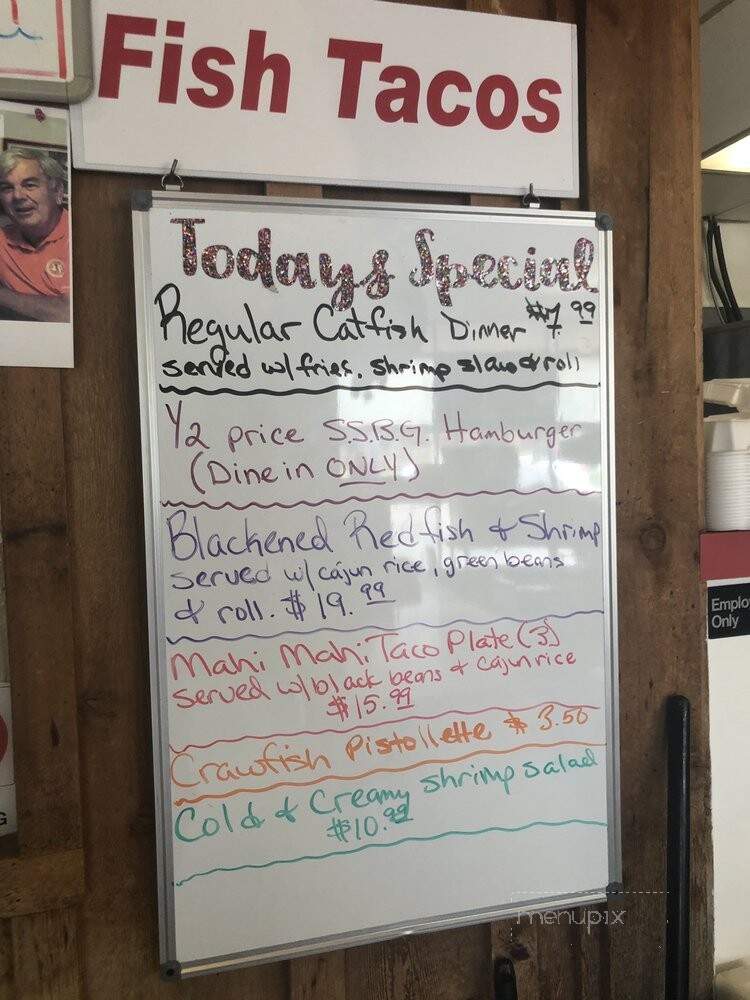 Fish Tacos
Todays Special
Regular Catfish Dinner $7.99
served w/ fries, shrimp slaw & roll
1/2 price S.S.B.G. Hamburger
(Dine in ONLY)
Blackened Redfish & Shrimp
served w/ cajun rice, green beans
& roll. $19.99
Mahi Mahi Taco Plate (3)
served w/ black beans & cajun rice
$15.99
Crawfish Pistollette $3.50
Cold & Creamy shrimp salad
$10.99
Emplo
Only
G
menupix